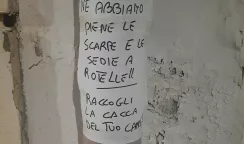 NE ABBIAMO
PIENE LE
SCARPE E LE
SEDIE A
ROTELLE!!
RACCOGLI
LA CACCA
DEL TUO CANE